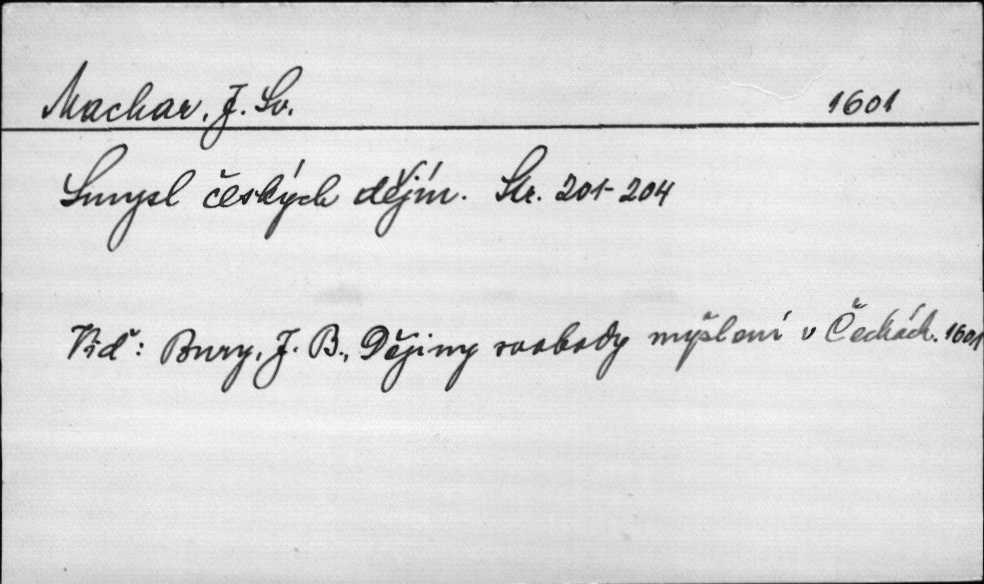 Machar, J. Sv. 1601
Smysl českých dějin. Str. 201-204
Viď: Bury, J. B., Dějiny svobody myšlení v Čechách. 1601